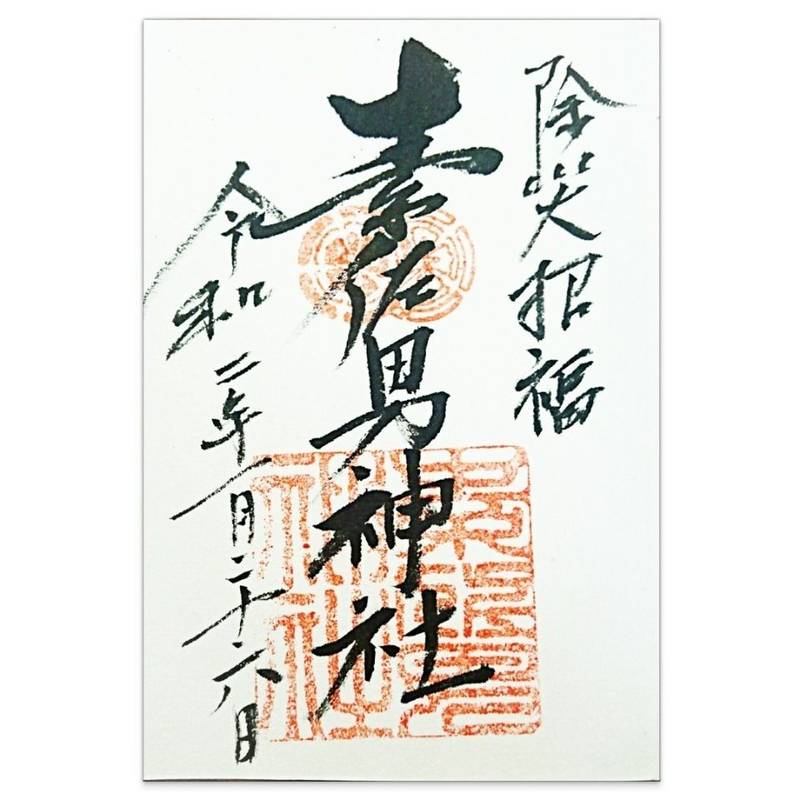 除災招福
素佐男神社
令和二年一月二十六日